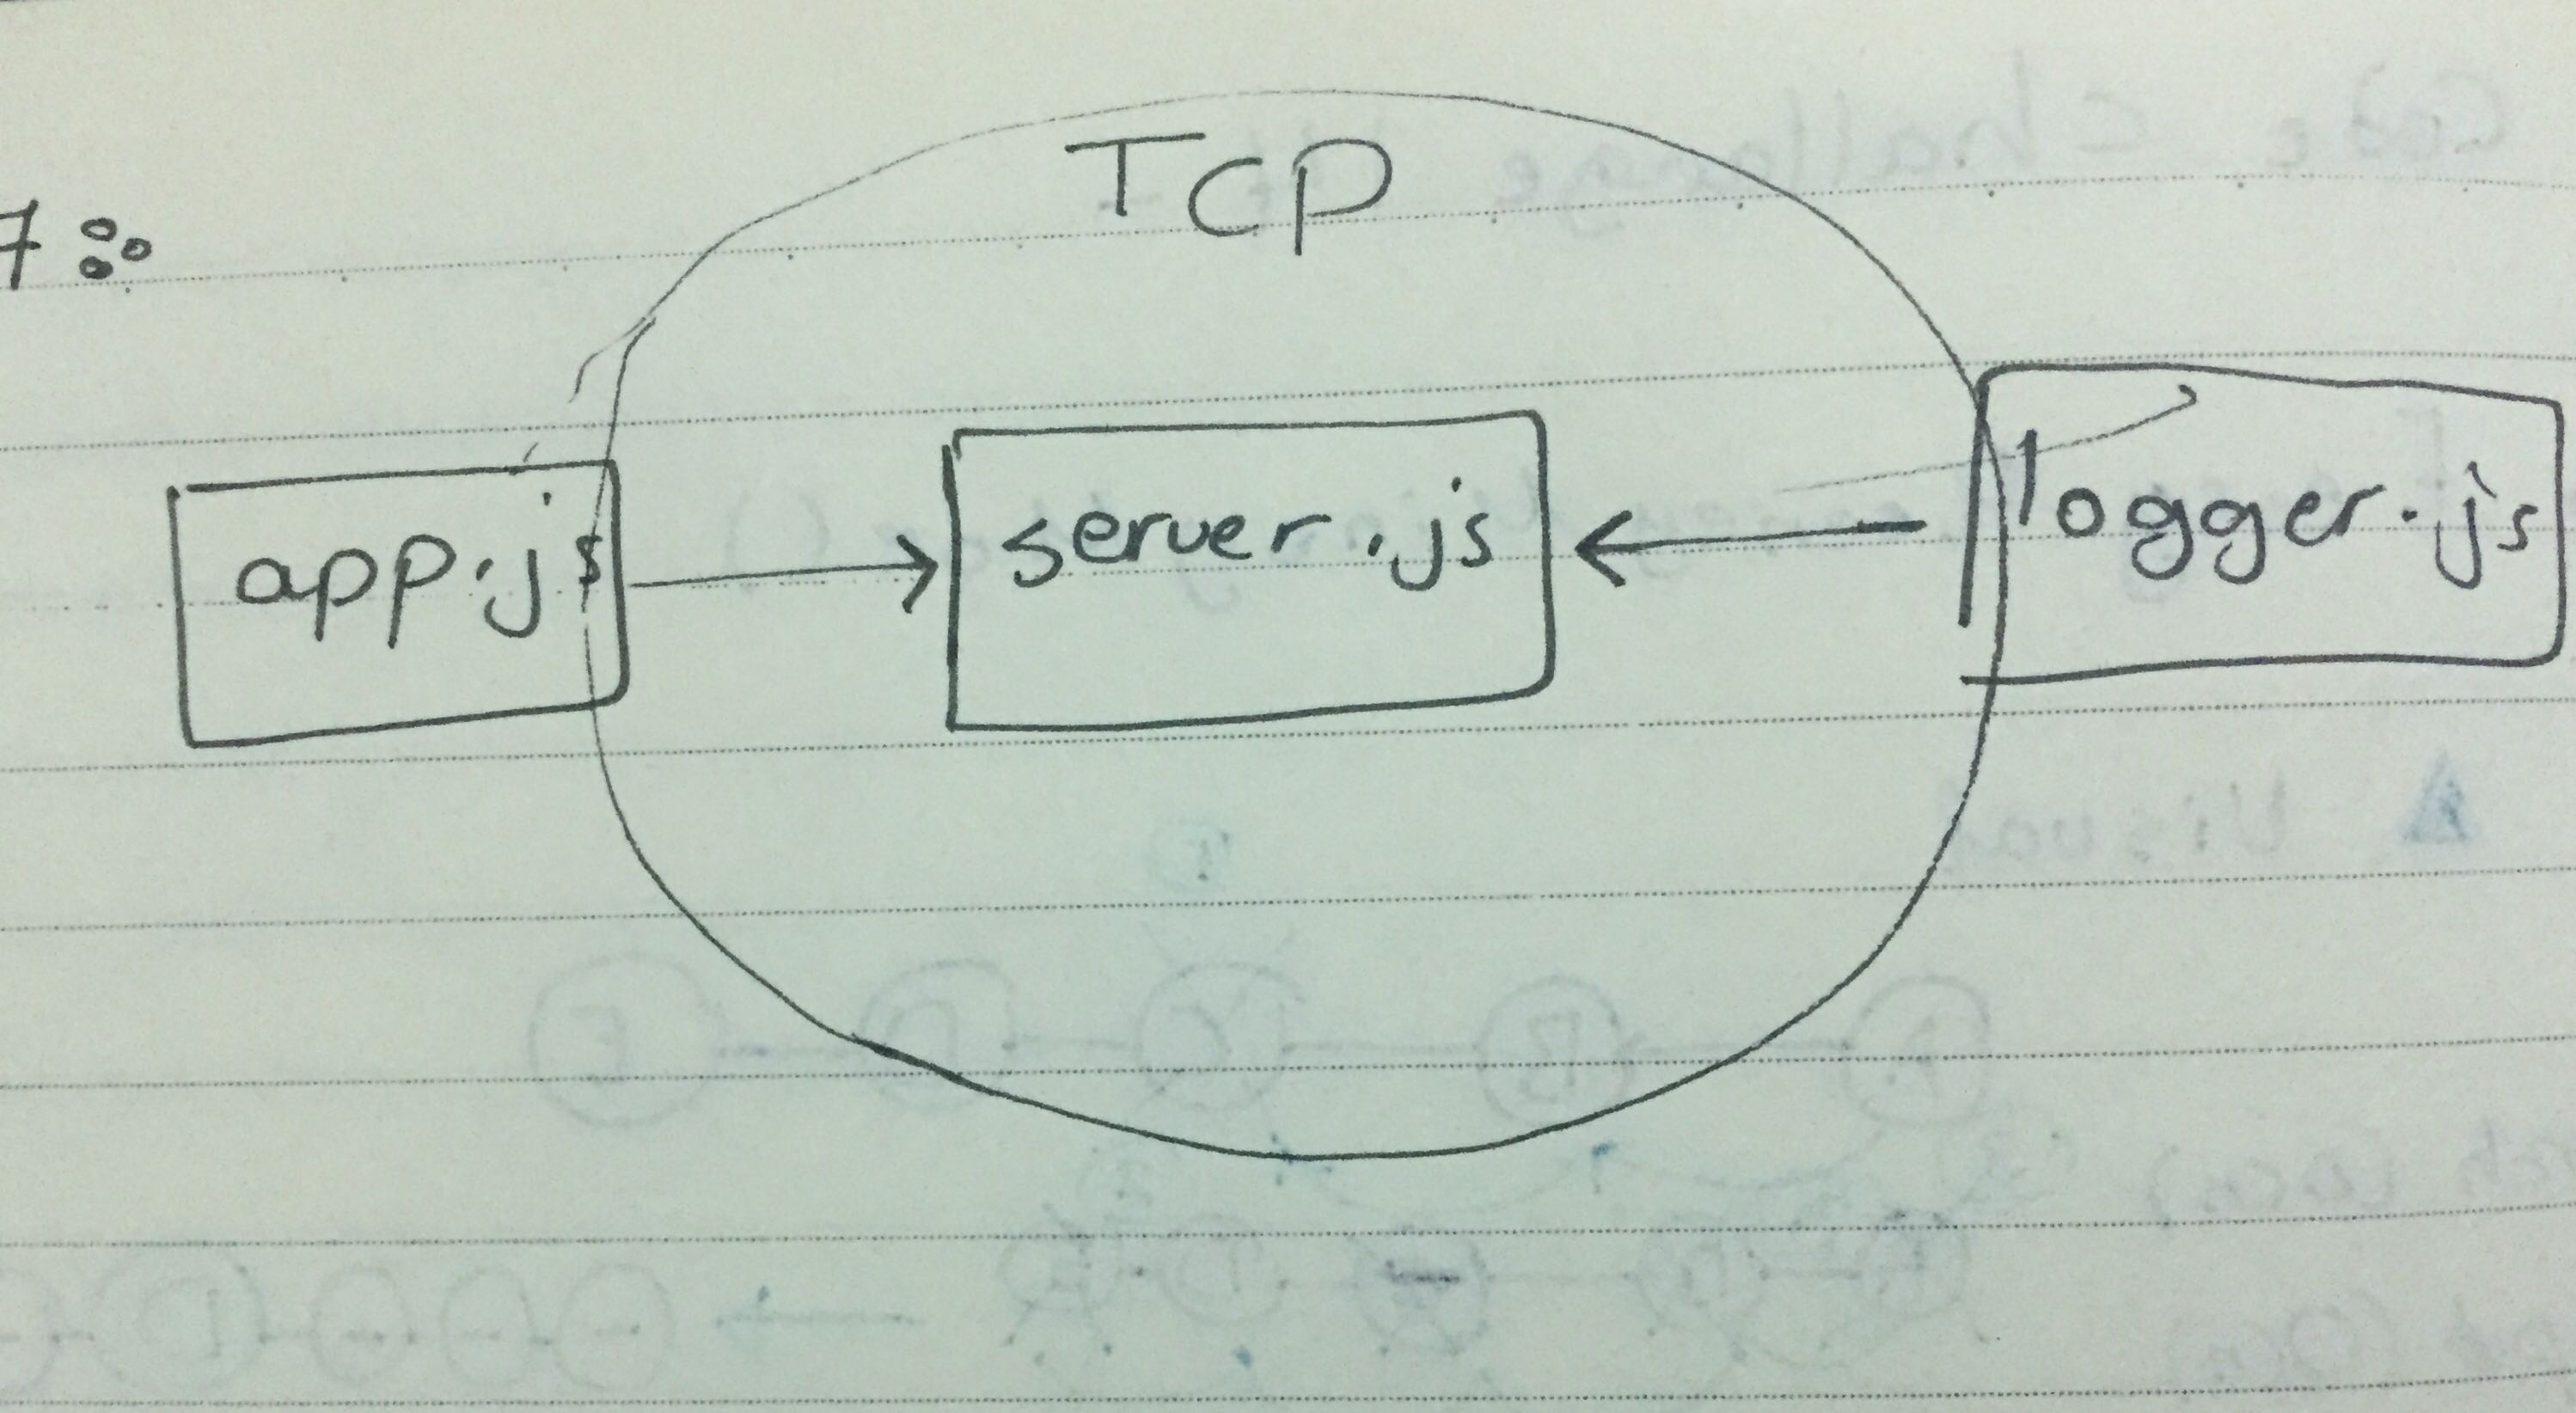 TCP
7
app.js
server.js
logger.js